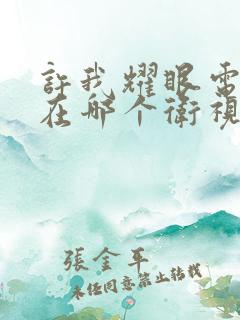 許我耀眼電
在哪个衛視
張金平
未经同意禁止转载